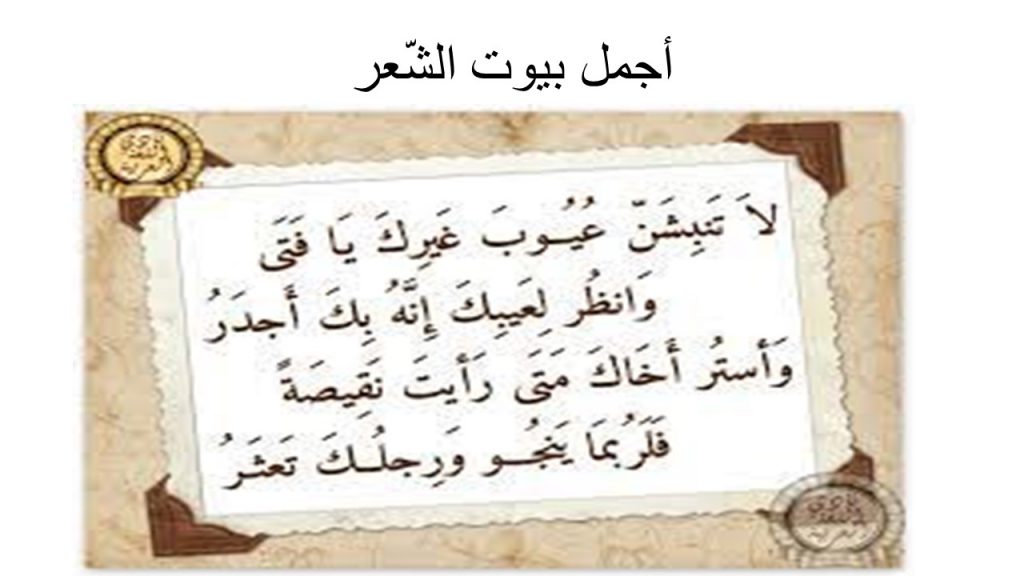 أجمل بيوت الشّعر
لاَ تَنبِشَنّ عُيُـوبَ غَيرِكَ يَا فَتَى
وَانظُر لِعَيبِكَ إِنَّهُ بِكَ أَجدَرُ
وَأستُر أَخَاكَ مَتَى رَأيتَ نَقِيصَةً
فَلَرُبمَا يَنجُـو وَرِجلُـكَ تَعثَـرُ